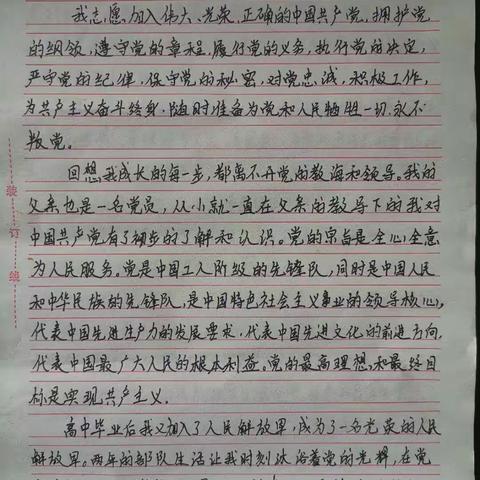 我志愿加入伟大、光荣、正确的中国共产党，拥护党
的纲领，遵守党的章程，履行党的义务，执行党的决定，
严守党的纪律，保守党的秘密，对党忠诚，积极工作，
为共产主义奋斗终身，随时准备为党和人民牺牲一切，永不
叛党。
回想我成长的每一步，都离不开党的教诲和领导。我的
父亲也是一名党员，从小就一直在父亲的教导下的我对
中国共产党有了初步的了解和认识。党的宗旨是全心全意
为人民服务。党是中国工人阶级的先锋队，同时是中国人民
和中华民族的先锋队，是中国特色社会主义事业的领导核心，
代表中国先进生产力的发展要求，代表中国先进文化的前进方向，
代表中国最广大人民的根本利益。党的最高理想和最终目
标是实现共产主义。
高中毕业后我又加入了人民解放军，成为了一名光荣的人民
解放军。两年的部队生活让我时刻沐浴着党的光辉，在党
装
订
线